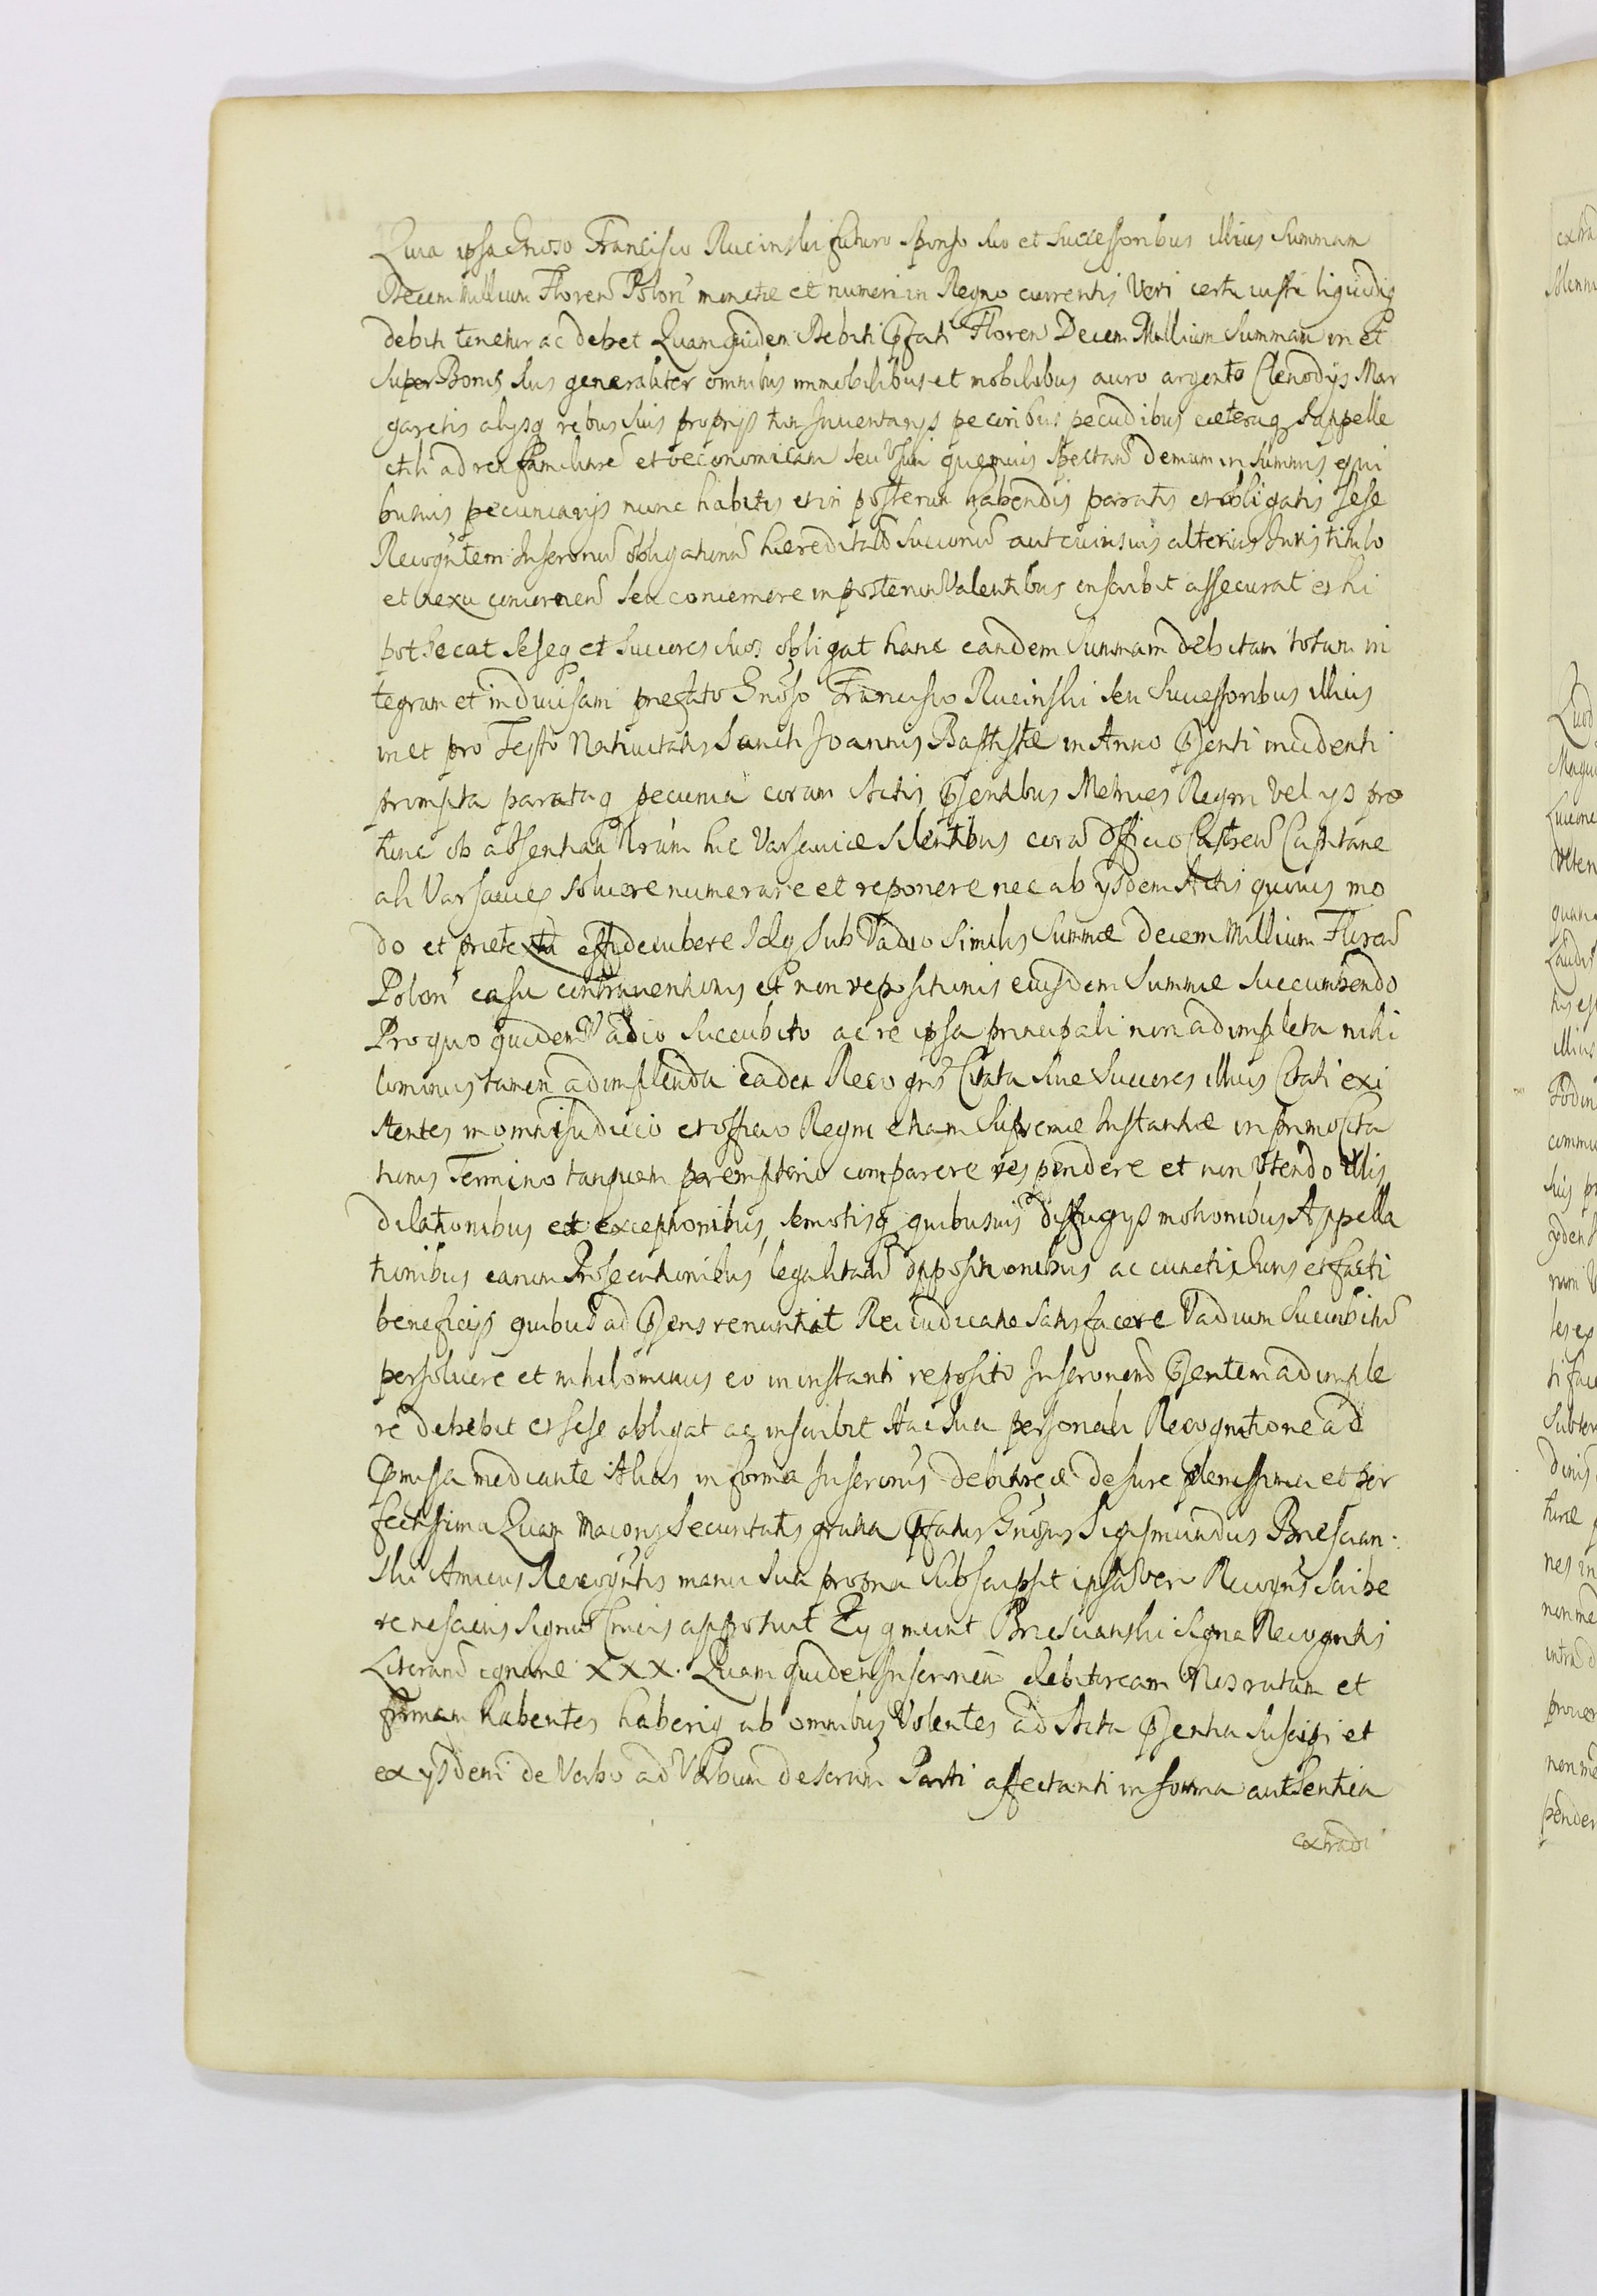 Quia ipsa Gnoso Francisco Rucinski futuro sponso suo et successoribus illius summam
Decem Millium Floren Polon monetæ et numeri in Regno currentis Veri certi iusti liquidiq
debiti tenetur ac debet Quam quidem Debiti Pfati Floren Decem Millium Summam in et
super Bonis suis generaliter omnibus immobilibus et mobilibus auro argento Clenodys Mar
garetis alysq rebus suis proprys tum Inventarys pecoribus pecudibus cæteraq suppelle
ctili ad rem familiare et oeconomicam seu Usum quemvis spectan demum in summis qui
busvis pecuniarys nunc habitis et in posterum habendis paratis et obligatis sese
Recogntem Inscronu obligationu hæreditatu Succonu aut cuiusvis alterius Iuris titulo
et nexu concernen seu concernere in posterum Valentibus inscribit assecurat et hi
pothecat seseq et succores suos obligat hanc eandem summam debitam totam in
tegram et indivisam prefato Gnoso Francisco Rucinski seu successoribus illius
in et pro Festo Nativitatis Sancti Joannis Baptistæ in Anno Psenti incidenti
prompta parataq pecunia coram Actis Psentibus Metrices Regni vel ys pro
tunc ob absentiam Nram hic Varsaviæ silentibus cora Officio Castren Capitane
ali Varsavien solvere numerare et reponere nec ab ysdem Actis quovis mo
do et prætextu effidecubere Idq sub Vadio similis summæ decem Millium Floren
Polon casu contraventionis et non repositionis eiusdem summæ succumbendo
Pro quo quidem Vadio succubito ac re ipsa principali non adimpleta nihi
lominus tamen adimplenda eadem Recogns Citata sive succores illius Citati exi
stentes in omni Iudicio et officio Regni etiam supremæ Instantiæ in primo Cita
tionis Termino tanquam peremptorio comparere respondere et non Utendo Ullis
dilationibus et exceptionibus, semotisq quibusvis diffugys motionibus Appella
tionibus earum Prosecutionibus legalitatu oppositionibus ac cunctis Iuris et facti
beneficys quibus ad Psens renuntiat Rei iudicatæ satisfacere Vadium succubitu
persolvere et nihilominus eo in instanti reposito Inscronem Psentem adimple
re debebit et sese obligat ac inscribit Hac sua personali Recognitione ad
Pmissa mediante Alias in forma Inscronis debitoreæ de Iure plenissima et per
fectissima Quam maioris securitatis gratia Pfatus Gnosus Sigismundus Briescian
ski Amicus Recogntis manu sua propria subscripsit ipsa vero Recogns scribe
re nesciens signu Crucis apposuit Zygmunt Briescianski signa Recogntis
Literaru ignaræ XXX. Quam quidem Inscronem debitoream Nos ratam et
firmam habentes haberiq ab omnibus Volentes ad Acta Psentia suscipi et
ex ysdem de Verbo ad Verbum descram Parti affectanti in forma authentica
extradi